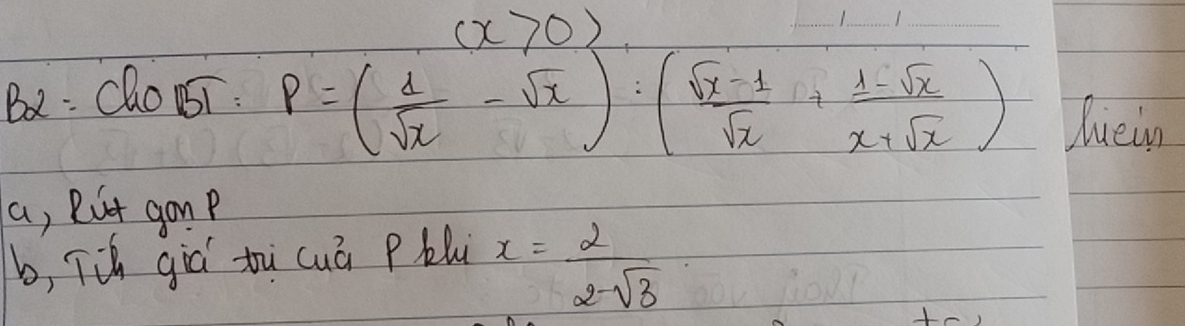 (x > 0).
B2: Cho BT: P = (1/√x - √x) : (√x-1/√x + 1-√x/x+√x)
a, Rút gọn P
b, Tính giá trị của P khi x = 2/2-√3.